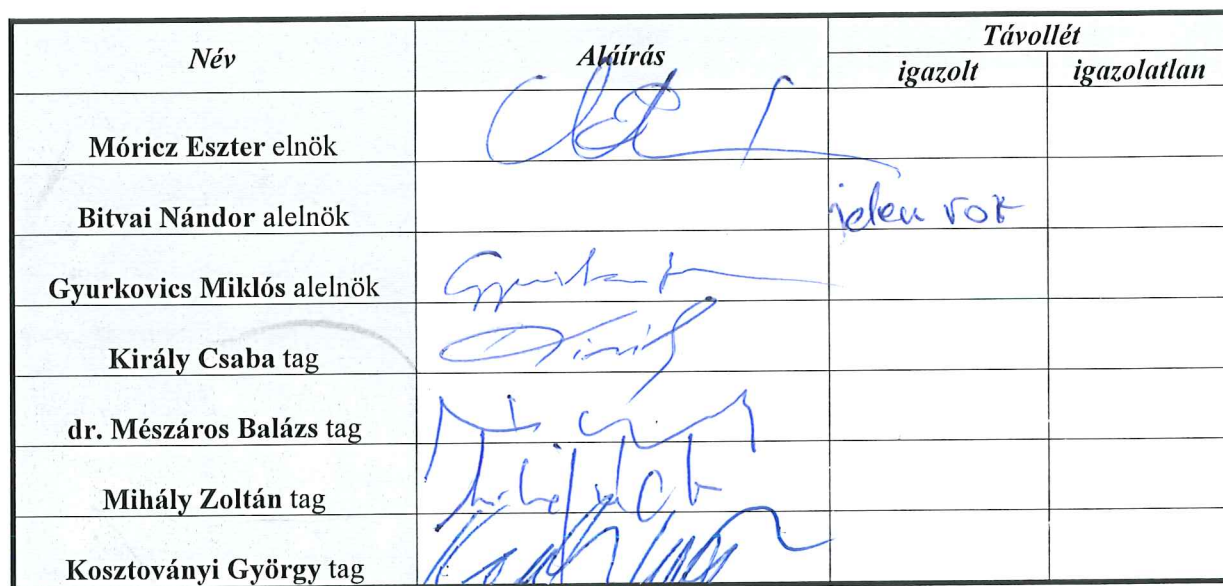 Név Aláírás Távollét
igazolt igazolatlan
Móricz Eszter elnök
Bitvai Nándor alelnök jelen volt
Gyurkovics Miklós alelnök
Király Csaba tag
dr. Mészáros Balázs tag
Mihály Zoltán tag
Kosztoványi György tag